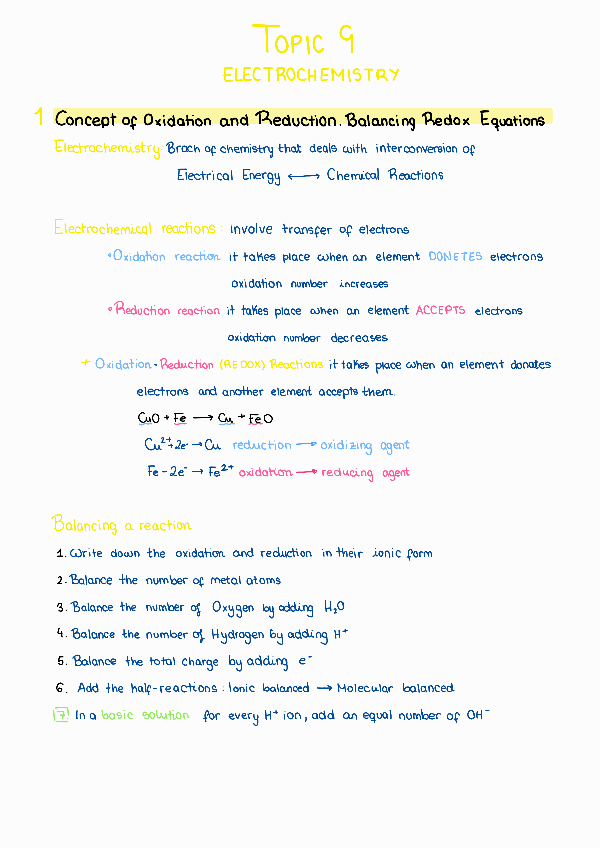 TOPIC 9
ELECTROCHEMISTRY
1 Concept of Oxidation and Reduction. Balancing Redox Equations
Electrochemistry: Brach of chemistry that deals with interconversion of
Electrical Energy ⟷ Chemical Reactions
Electrochemical reactions: involve transfer of electrons
• Oxidation reaction it takes place when an element DONETES electrons
oxidation number increases
• Reduction reaction it takes place when an element ACCEPTS electrons
oxidation number decreases
+ Oxidation - Reduction (REDOX) Reactions it takes place when an element donates
electrons and another element accepts them.
CuO + Fe → Cu + FeO
Cu²⁺ + 2e⁻ → Cu reduction → oxidizing agent
Fe - 2e⁻ → Fe²⁺ oxidation → reducing agent
Balancing a reaction
1. Write down the oxidation and reduction in their ionic form
2. Balance the number of metal atoms
3. Balance the number of Oxygen by adding H₂O
4. Balance the number of Hydrogen by adding H⁺
5. Balance the total charge by adding e⁻
6. Add the half-reactions: Ionic balanced → Molecular balanced
7 In a basic solution for every H⁺ ion, add an equal number of OH⁻